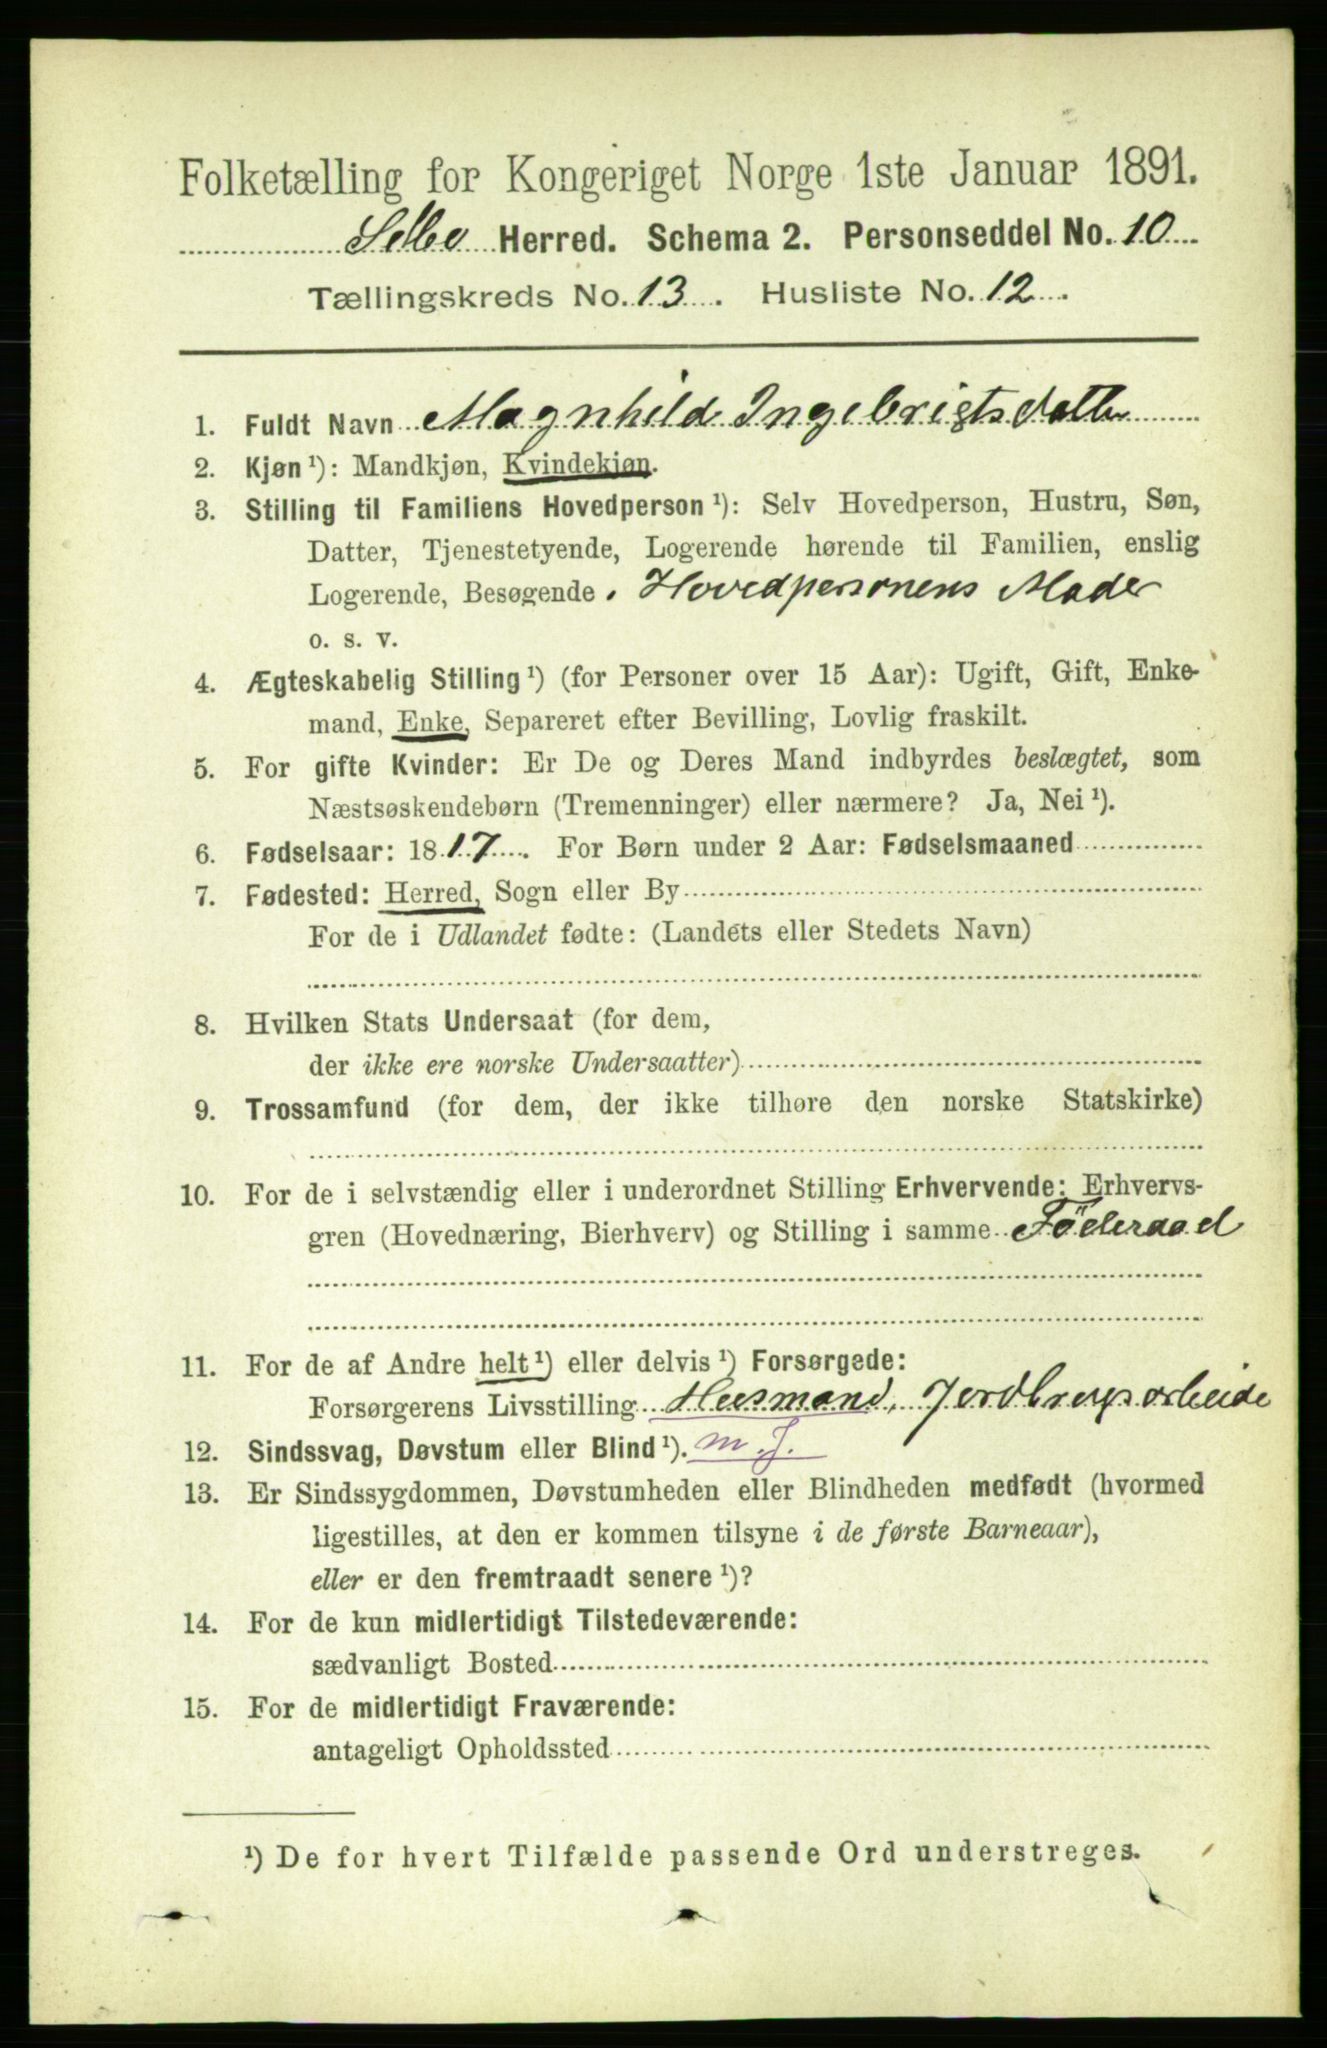 Folketælling for Kongeriget Norge 1ste Januar 1891.
Selbo Herred. Schema 2. Personseddel No. 10
Tællingskreds No. 13. Husliste No. 12.
1. Fuldt Navn Magnhild Ingebrigtsdatter
2. Kjøn ¹): Mandkjøn, Kvindekjøn.
3. Stilling til Familiens Hovedperson ¹): Selv Hovedperson, Hustru, Søn,
Datter, Tjenestetyende, Logerende hørende til Familien, enslig
Logerende, Besøgende. Hovedpersonens Moder
o. s. v.
4. Ægteskabelig Stilling ¹) (for Personer over 15 Aar): Ugift, Gift, Enke-
mand, Enke, Separeret efter Bevilling, Lovlig fraskilt.
5. For gifte Kvinder: Er De og Deres Mand indbyrdes beslægtet, som
Næstsøskendebørn (Tremenninger) eller nærmere? Ja, Nei ¹).
6. Fødselsaar: 1817. For Børn under 2 Aar: Fødselsmaaned
7. Fødested: Herred, Sogn eller By
For de i Udlandet fødte: (Landets eller Stedets Navn)
8. Hvilken Stats Undersaat (for dem,
der ikke ere norske Undersaatter)
9. Trossamfund (for dem, der ikke tilhøre den norske Statskirke)
10. For de i selvstændig eller i underordnet Stilling Erhvervende: Erhvervs-
gren (Hovednæring, Bierhverv) og Stilling i samme Föderaad
11. For de af Andre helt ¹) eller delvis ¹) Forsørgede:
Forsørgerens Livsstilling Husmand, Jordbrugsarbeide
12. Sindssvag, Døvstum eller Blind ¹). m. J.
13. Er Sindssygdommen, Døvstumheden eller Blindheden medfødt (hvormed
ligestilles, at den er kommen tilsyne i de første Barneaar),
eller er den fremtraadt senere ¹)?
14. For de kun midlertidigt Tilstedeværende:
sædvanligt Bosted
15. For de midlertidigt Fraværende:
antageligt Opholdssted
¹) De for hvert Tilfælde passende Ord understreges.